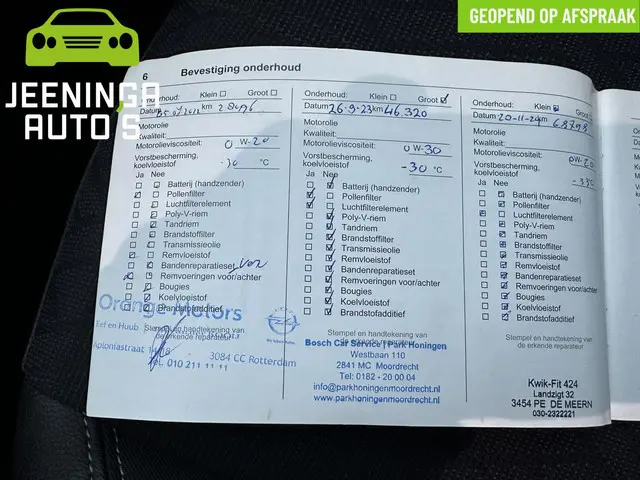 GEOPEND OP AFSPRAAK
JEENINGA
AUTO'S
6 Bevestiging onderhoud
Onderhoud: Klein Groot
Datum km
Motorolie
Kwaliteit:
Motorolieviscositeit: 0 W-20
Vorstbescherming,
koelvloeistof -30 °C
Ja Nee
Batterij (handzender)
Pollenfilter
Luchtfilterelement
Poly-V-riem
Tandriem
Brandstoffilter
Transmissieolie
Remvloeistof
Bandenreparatieset
Remvoeringen voor/achter
Bougies
Koelvloeistof
Brandstofadditief
Stempel en handtekening van
de erkende reparateur
Orange Motors
3084 CC Rotterdam
Tel. 010 211 11 11
Onderhoud: Klein Groot
Datum 26-9-23 km 46.320
Motorolie
Kwaliteit:
Motorolieviscositeit: 0 W-30
Vorstbescherming,
koelvloeistof -30 °C
Ja Nee
Batterij (handzender)
Pollenfilter
Luchtfilterelement
Poly-V-riem
Tandriem
Brandstoffilter
Transmissieolie
Remvloeistof
Bandenreparatieset
Remvoeringen voor/achter
Bougies
Koelvloeistof
Brandstofadditief
Stempel en handtekening van
de erkende reparateur
Bosch Car Service | Park Honingen
Westbaan 110
2841 MC Moordrecht
Tel: 0182 - 20 00 04
info@parkhoningenmoordrecht.nl
www.parkhoningenmoordrecht.nl
Onderhoud: Klein Groot
Datum 20-11-24 km 68798
Motorolie
Kwaliteit:
Motorolieviscositeit: 0W-20
Vorstbescherming,
koelvloeistof -33°C
Ja Nee
Batterij (handzender)
Pollenfilter
Luchtfilterelement
Poly-V-riem
Tandriem
Brandstoffilter
Transmissieolie
Remvloeistof
Bandenreparatieset
Remvoeringen voor/achter
Bougies
Koelvloeistof
Brandstofadditief
Stempel en handtekening van
de erkende reparateur
Kwik-Fit 424
Landzigt 32
3454 PE DE MEERN
030-2322221